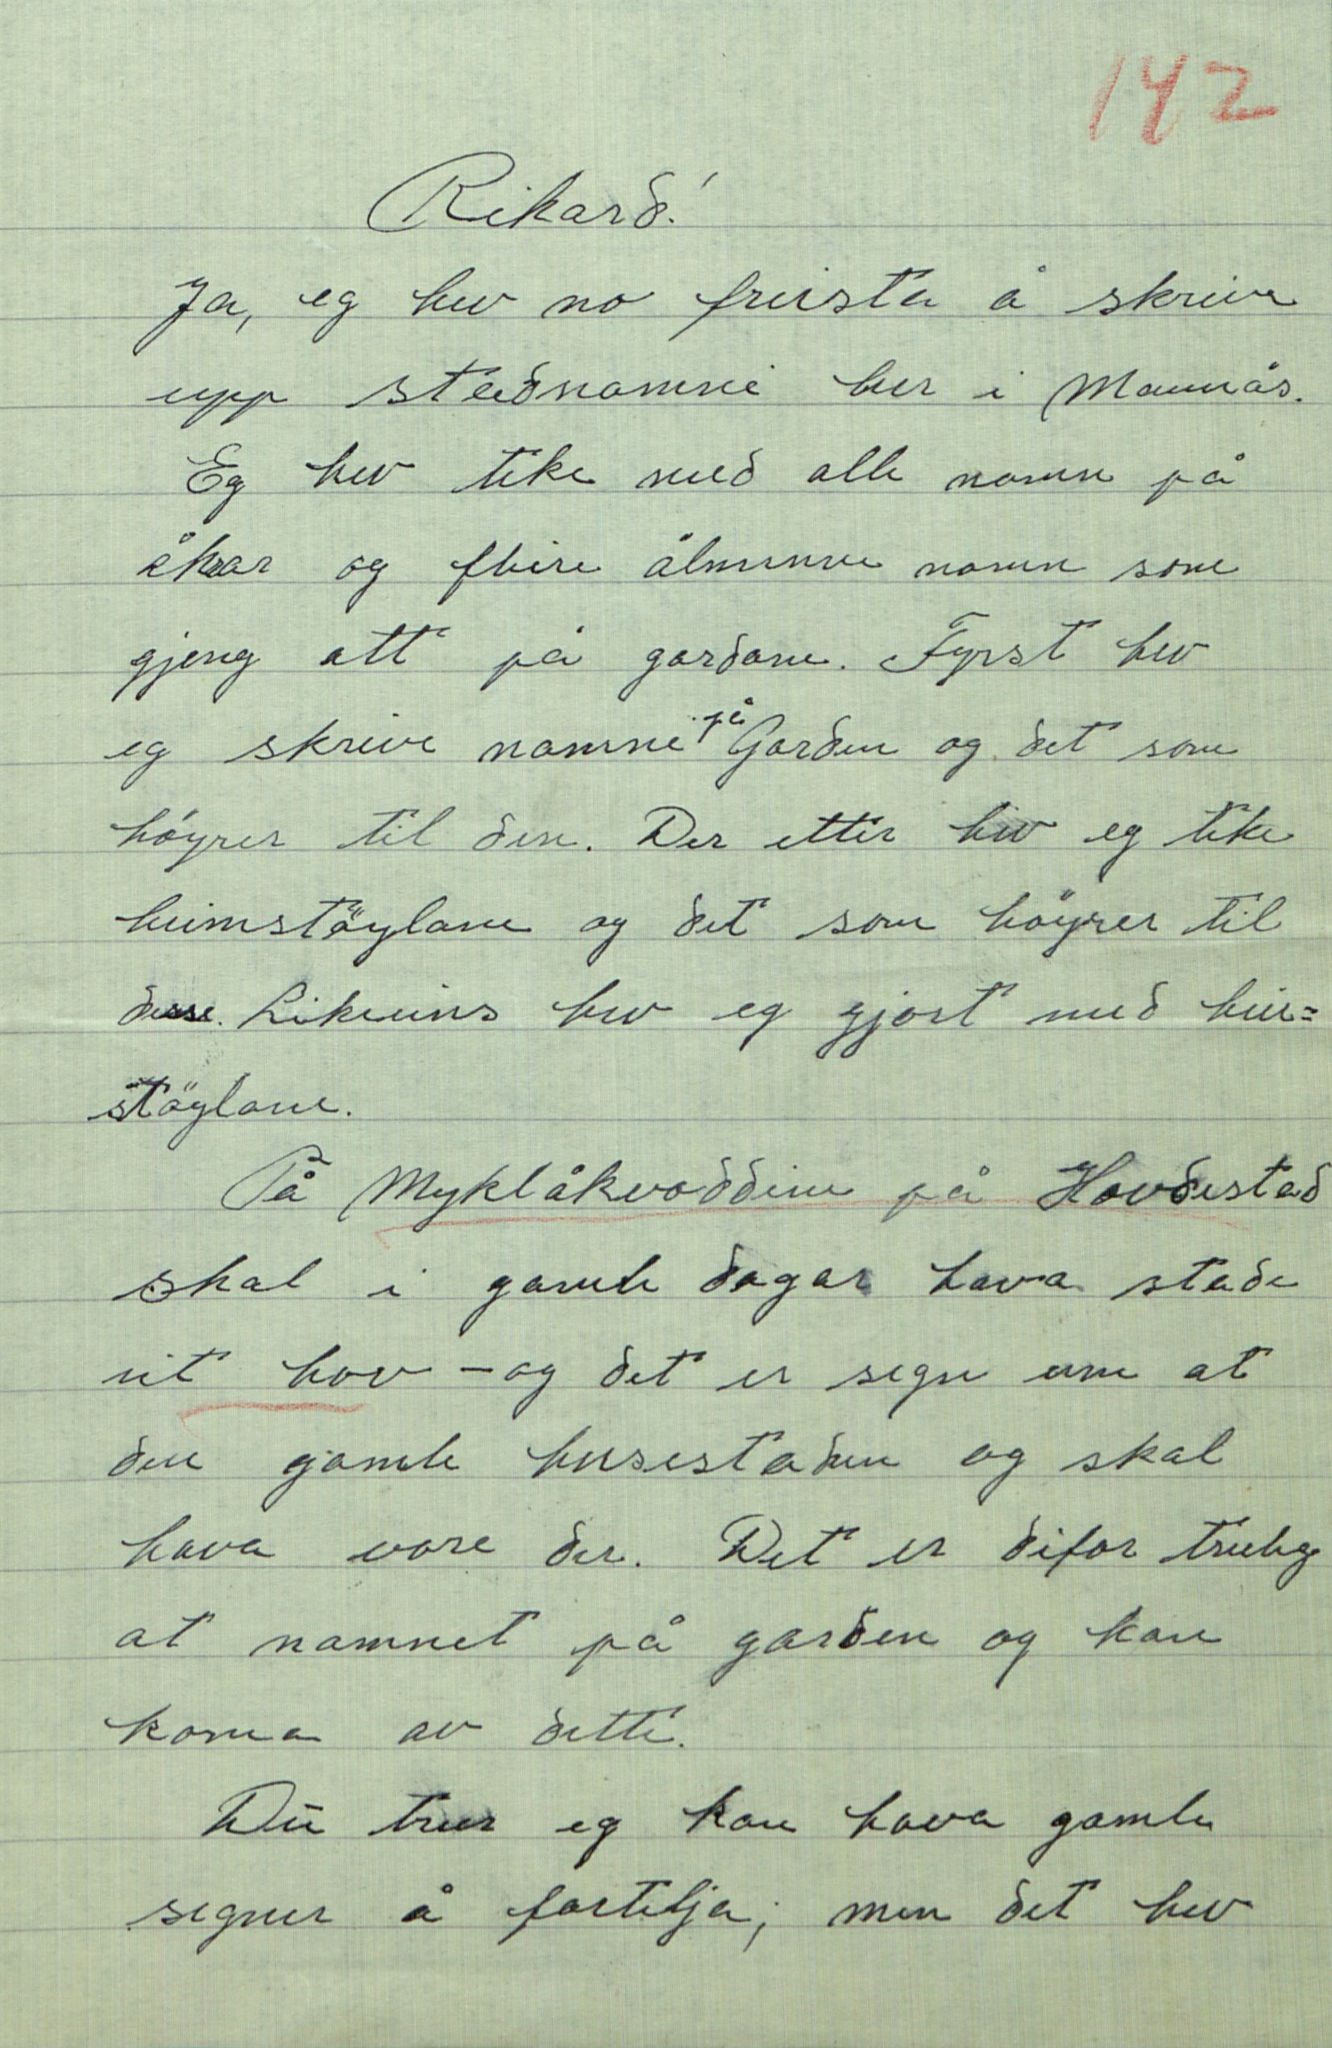 142
Rikard!
Ja, eg hev no freista å skrive
upp stednamni her i Mannås.
Eg hev teke med alle namn på
åkrar og fleire ålmenne namn som
gjeng att på gardane. Fyrst hev
eg skreve namne på Garden og det som
höyrer til den. Der etter hev eg teke
heimstöylane og det som höyrer til
desse. Likeeins hev eg gjort med hei=
stöylane.
På Myklåkvoddine på Hovdestad
skal i gamle dagar hava stade
eit hov – og det er segn um at
den gamle husestaden og skal
hava vore der. Det er difor truleg
at namnet på garden og kan
koma av dette.
Du trur eg kan hava gamle
segner å fortelja; men det hev